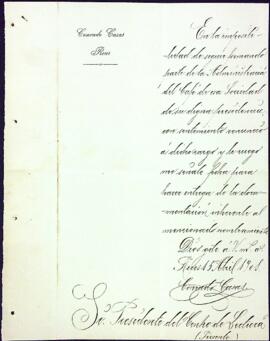 Conrado Casas
Reus
En la imposibi-
lidad de seguir formando
parte de la Administración
del Café de esa Sociedad
de su digna presidencia,
con sentimiento renuncio
á dicho cargo y le ruego
me señale fecha para
hacer entrega de la docu-
mentación inherente al
mencionado nombramiento
Dios gde á V. ms. as.
Reus 15 Abril 1901
Conrado Casas
Sr. Presidente del Centro de Lectura
(Presente)